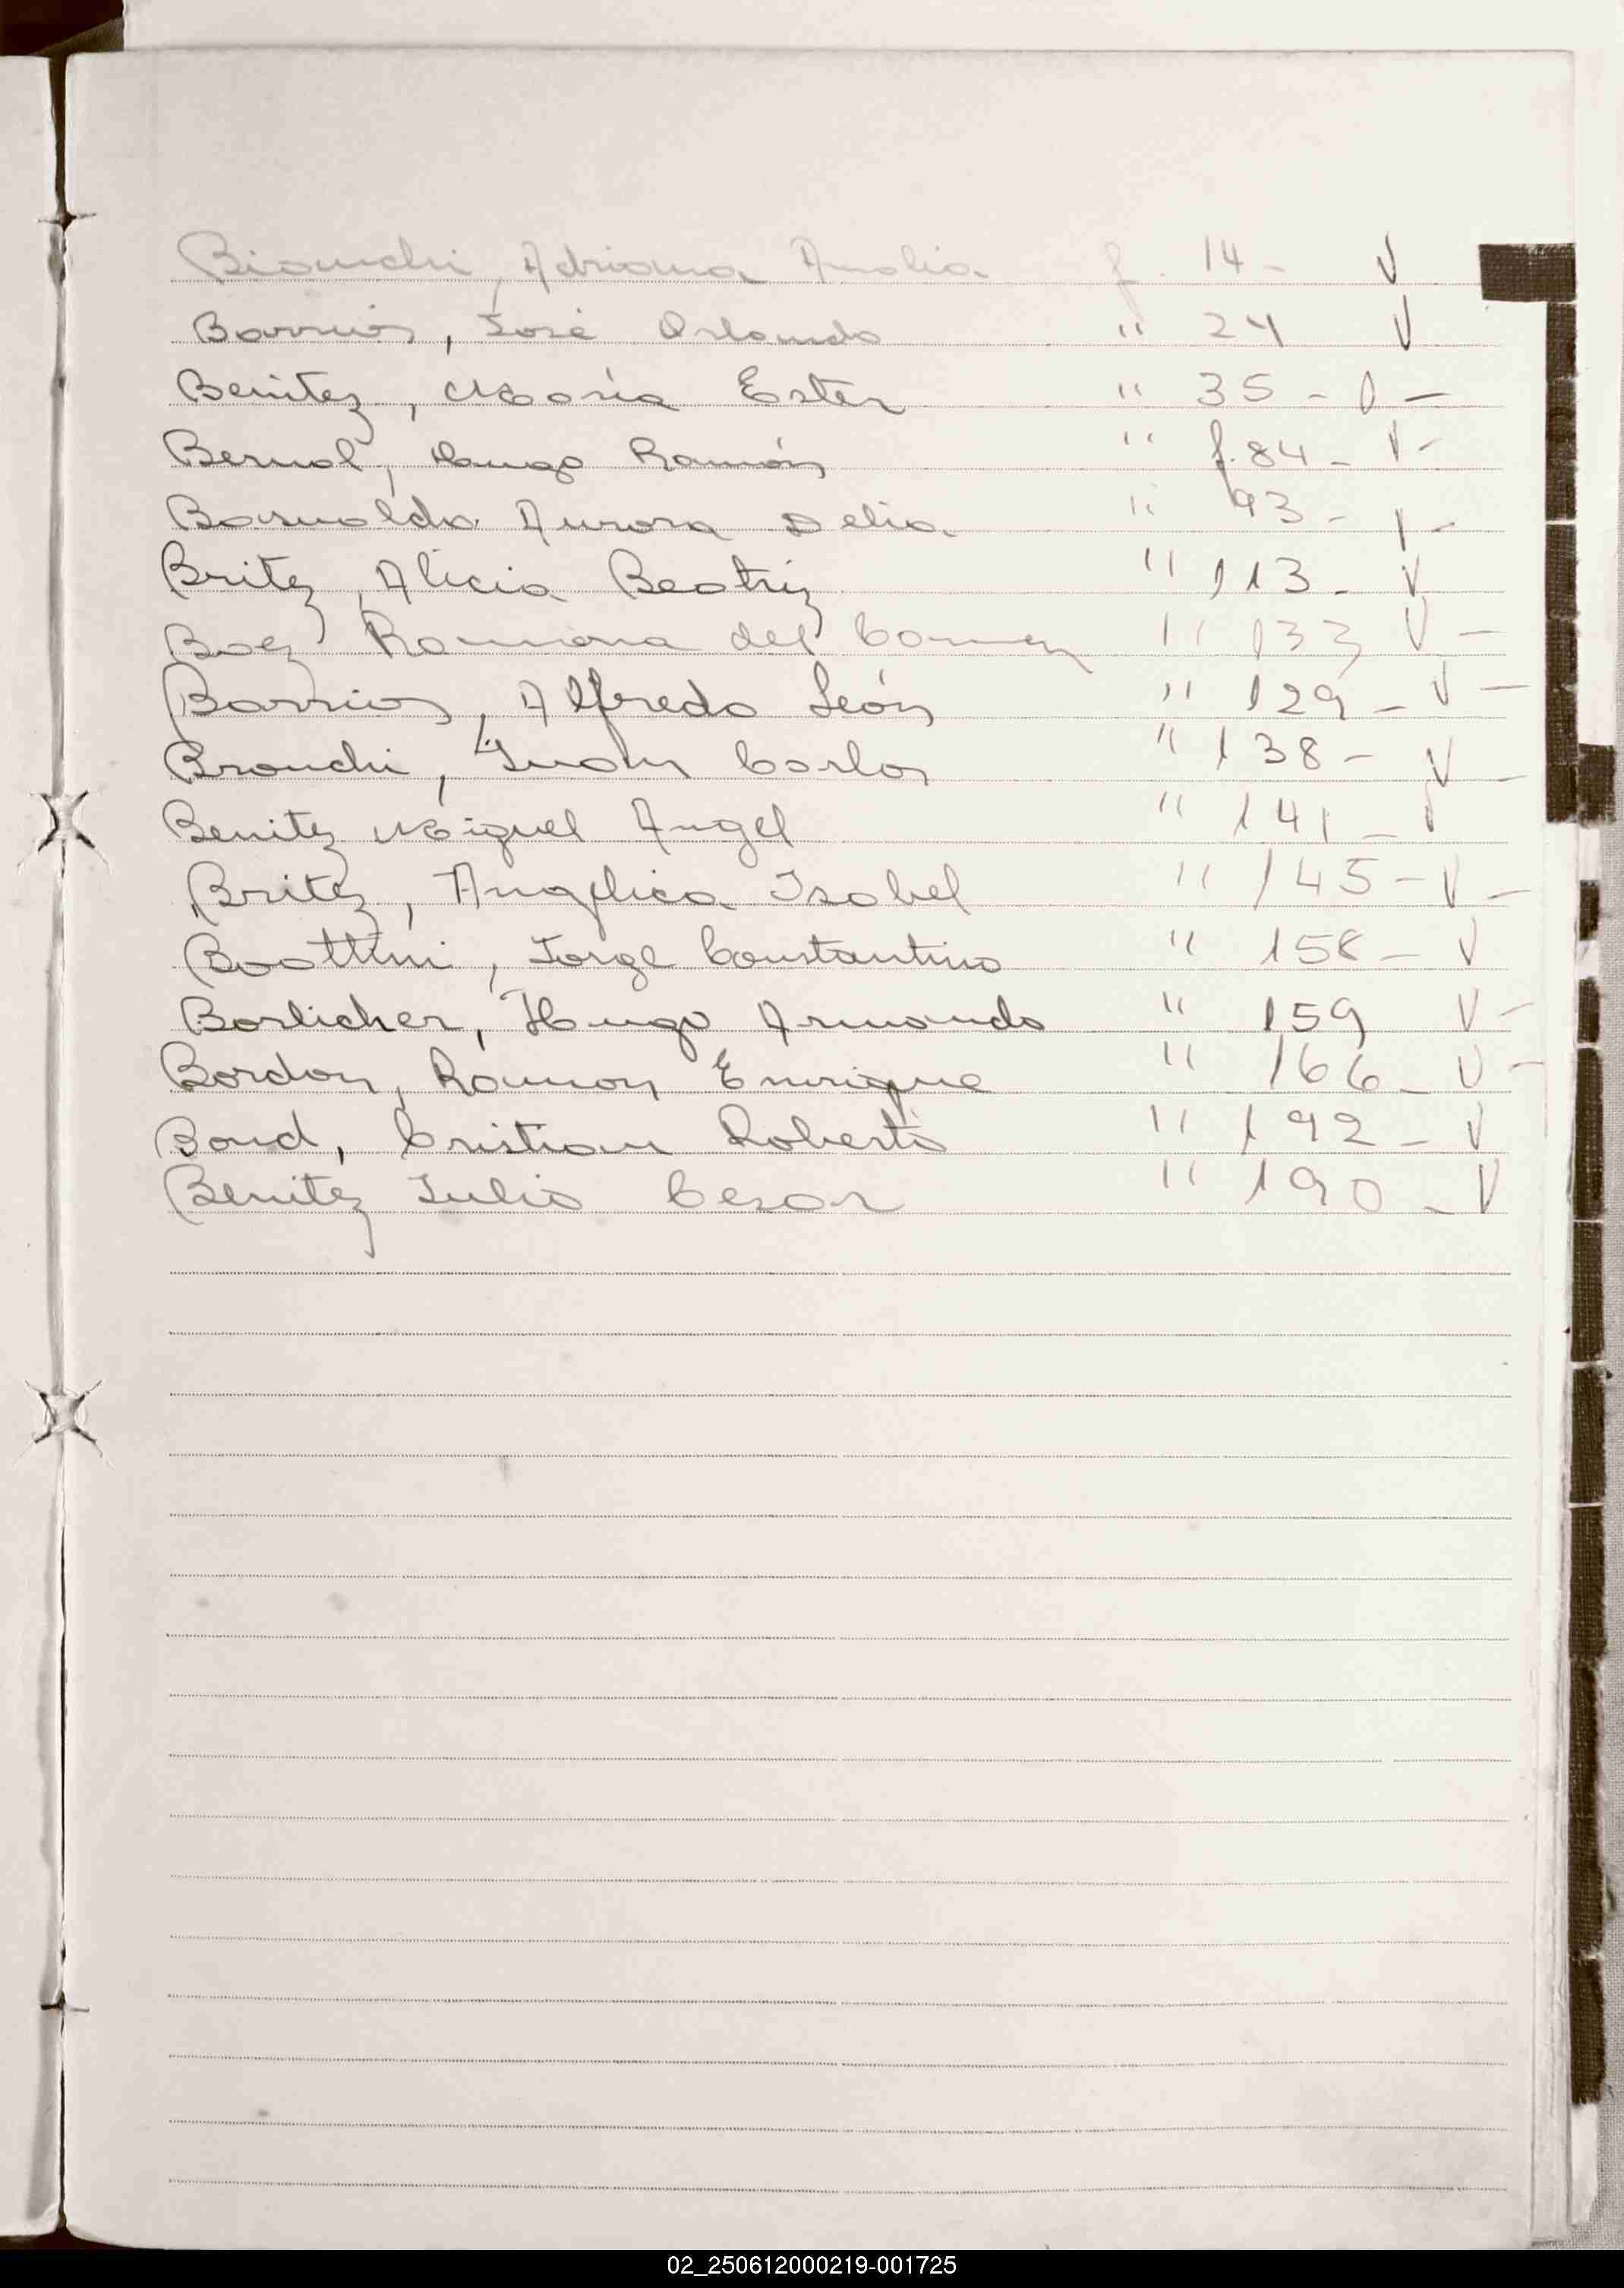 Bianchi, Adriana Amalia f. 14 - V
Barrios, José Orlando " 24 V
Benitez, María Ester " 35 - V -
Bernal, Hugo Ramón " f. 84 - V -
Basualdo Aurora Delia " 93 - V -
Britez, Alicia Beatriz " 113 - V
Baez Ramona del Carmen " 133 V -
Barrios, Alfredo León " 129 - V -
Bianchi, Juan Carlos " 138 - V -
Benitez Miguel Angel " 141 - V
Britez, Angélica Isabel " 145 - V -
Jorge Constantino " 158 - V
Borlicher, Hugo Armando " 159 V -
Bordon, Ramon Enrique " 166 - V -
Bond, Cristian Roberto " 192 - V
Benitez Julio Cesar " 190 - V
02_250612000219-001725